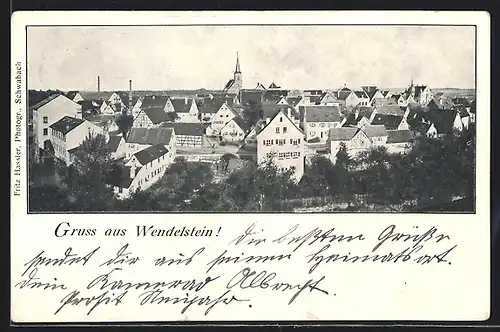 Fritz Hassler, Photogr., Schwabach
Gruss aus Wendelstein!
die besten Grüße
sendet dir aus seinem Heimatsort.
dein Kamerad Albrecht.
Prosit Neujahr.